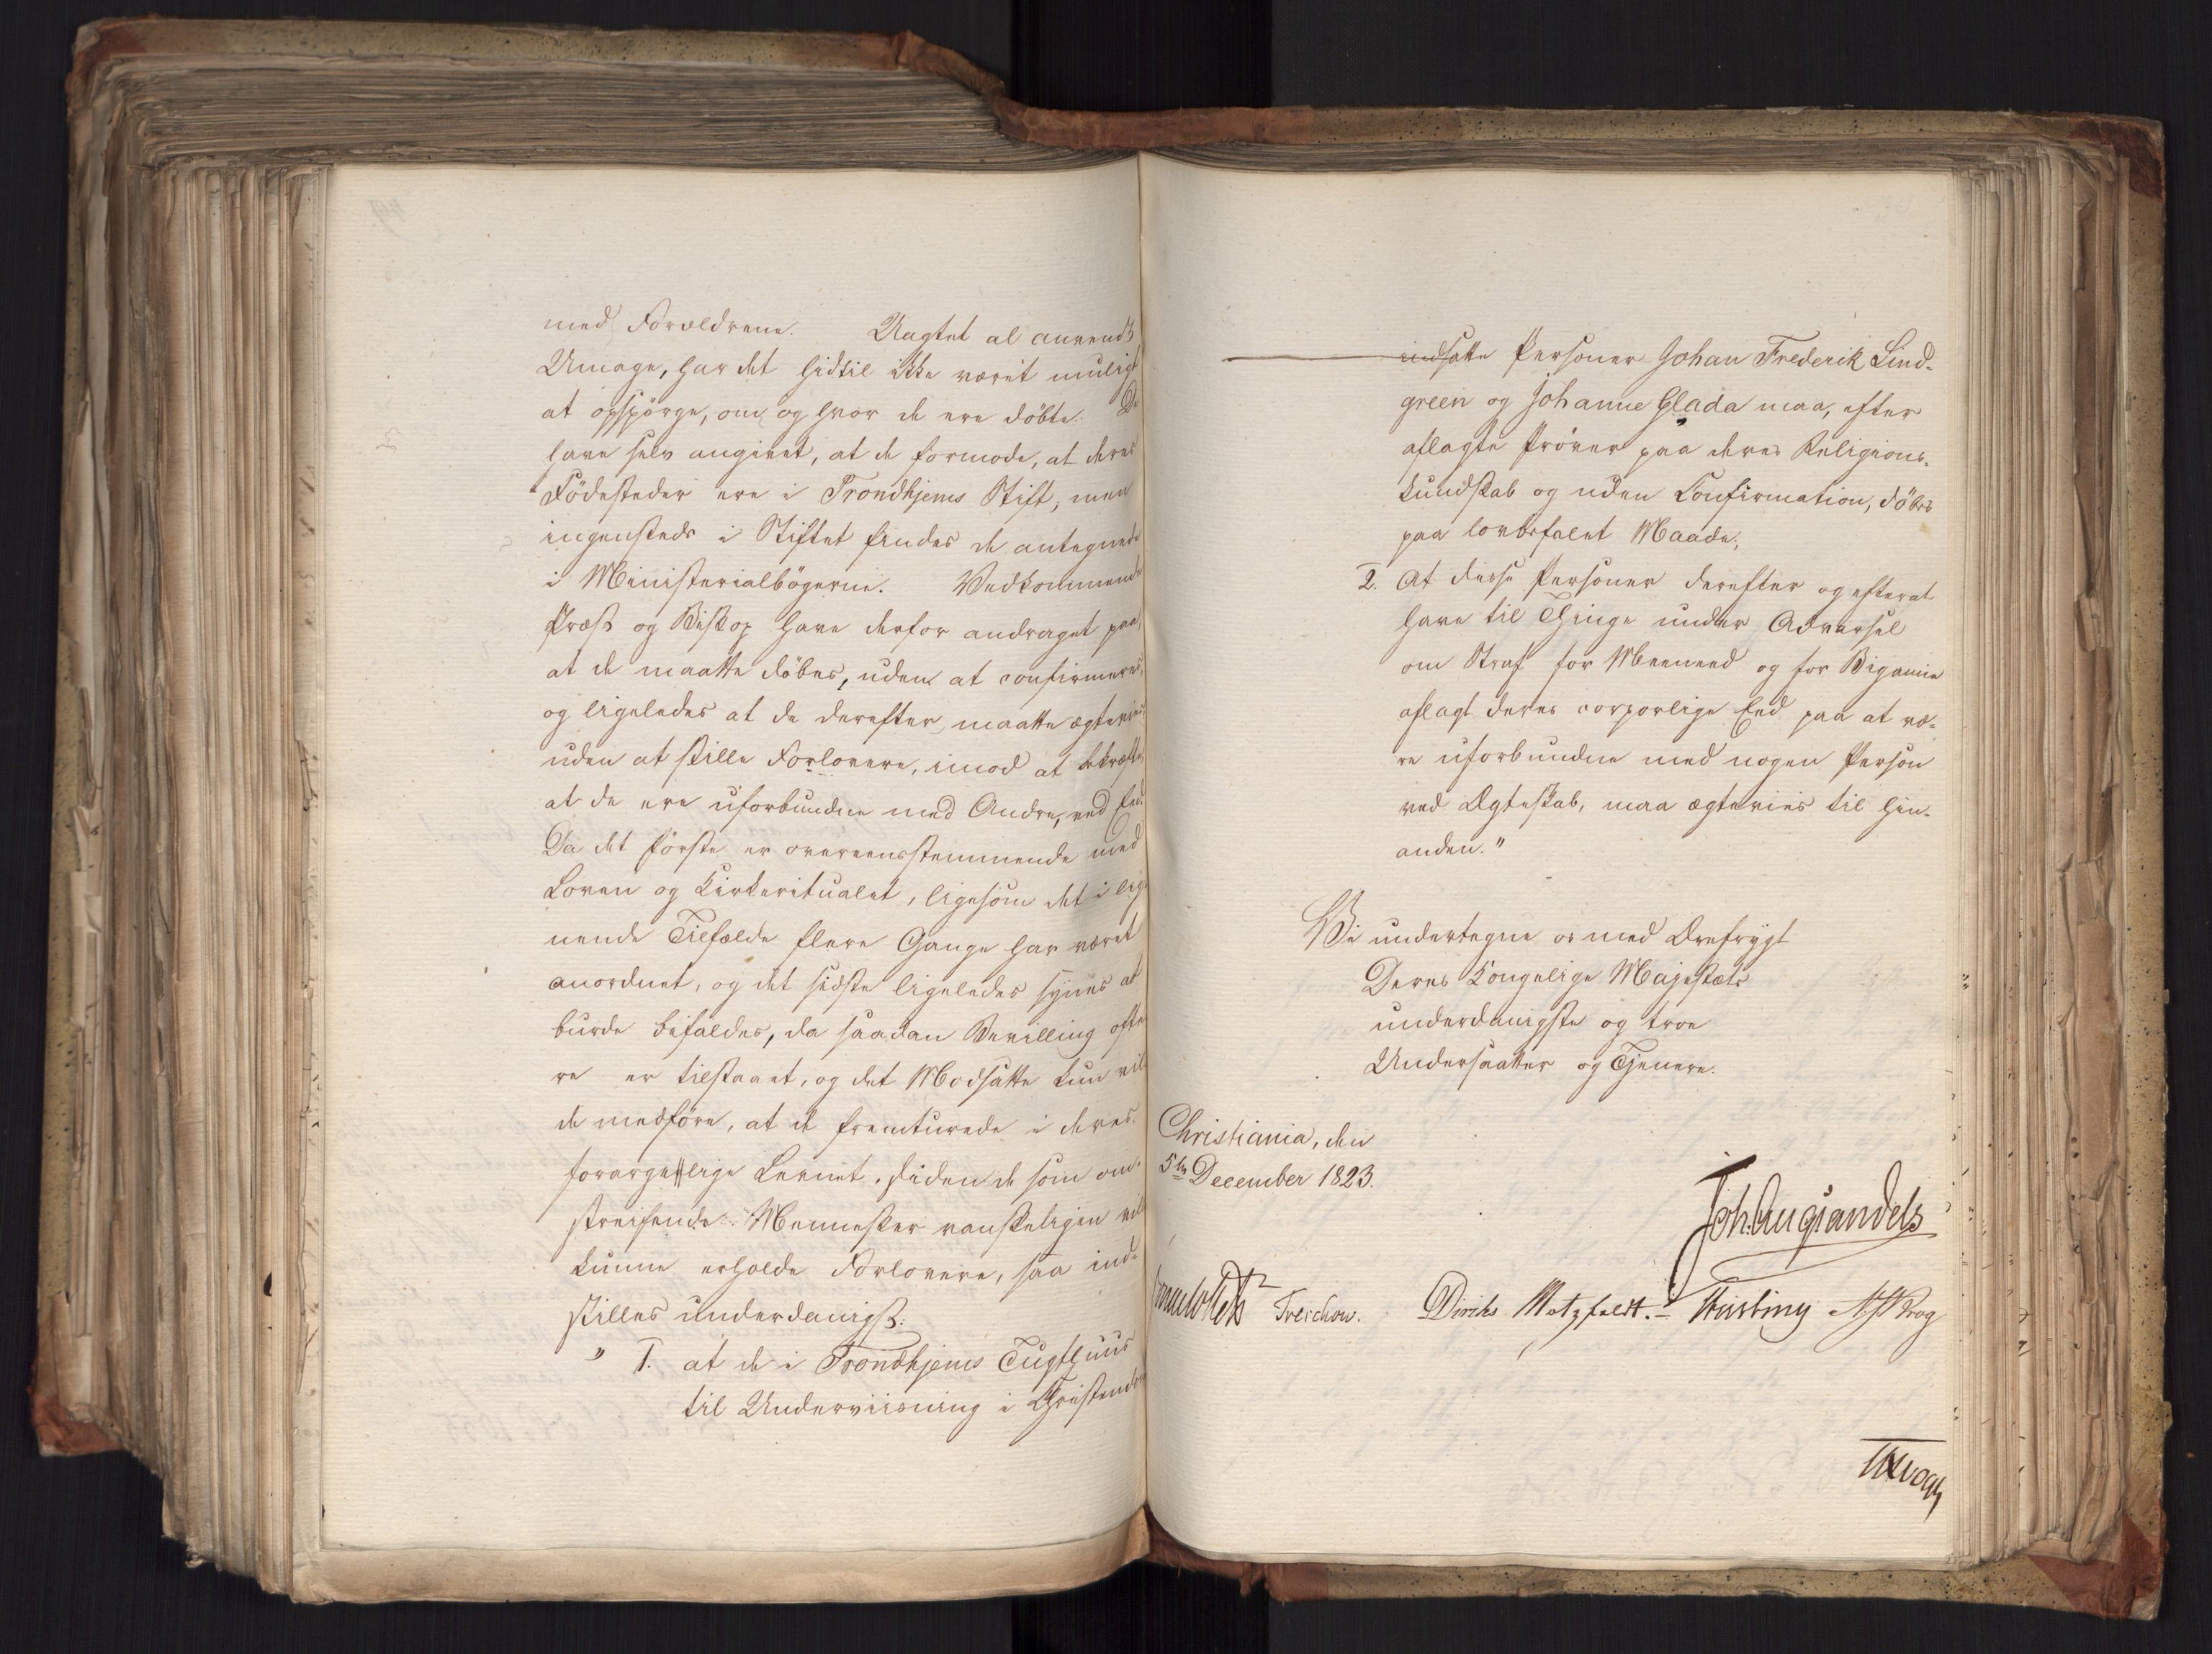 med Forældrene. Uagtet al anvendt
Umage, har det hidtil ikke været muligt
at opspörge, om og hvor de ere döbte. De
have selv angivet, at de formode, at deres
Födesteder ere i Trondhjems Stift; men
ingensteds i Stiftet findes de antegnede
i Ministerialbögerne. Vedkommende
Præst og Biskop have derfor andraget paa,
at de maatte döbes, uden at confirmeres,
og ligeledes at de derefter maatte ægtevies
uden at stille Forlovere, imod at bekræfte,
at de ere uforbundne med Andre, ved Eed.
Da det förste er overeensstemmende med
Loven og Kirkeritualet, ligesom det i lig
nende Tilfælde flere Gange har været
anordnet, og det sidste ligeledes synes at
burde bifaldes, da saadan Bevilling ofte
re er tilstaaet, og det Modsatte kun vil
de medföre, at de fremturede i deres
forargelige Levnet, siden de som om-
streifende Mennesker vanskeligen vil
kunne erholde Forlovere, saa ind-
stilles underdanigst:
" 1. at de i Trondhjems Tugthuus
til Underviisning i Christendom
indsatte Personer Johan Frederik Lind-
green og Johanne Glada maa, efter
aflagte Pröver paa deres Religions-
kundskab og uden Confirmation, döbes
paa lovbefalet Maade;
2. At disse Personer derefter og efterat
have til Thinge under Advarsel
om Straf for Meeneed og for Bigamie
aflagt deres corporlige Eed paa at væ-
re uforbundne med nogen Person
ved Ægteskab, maa ægtevies til hin-
anden."
Vi undertegne os med Ærefrygt
Deres Kongelige Majestæts
underdanigste og troe
Undersaatter og Tjenere.
Christiania, den
5te December 1823.
Joh. Aug Sandels
Sommerfeldt Treschow. Diriks Motzfeldt. Fasting N. Krog
Vogt